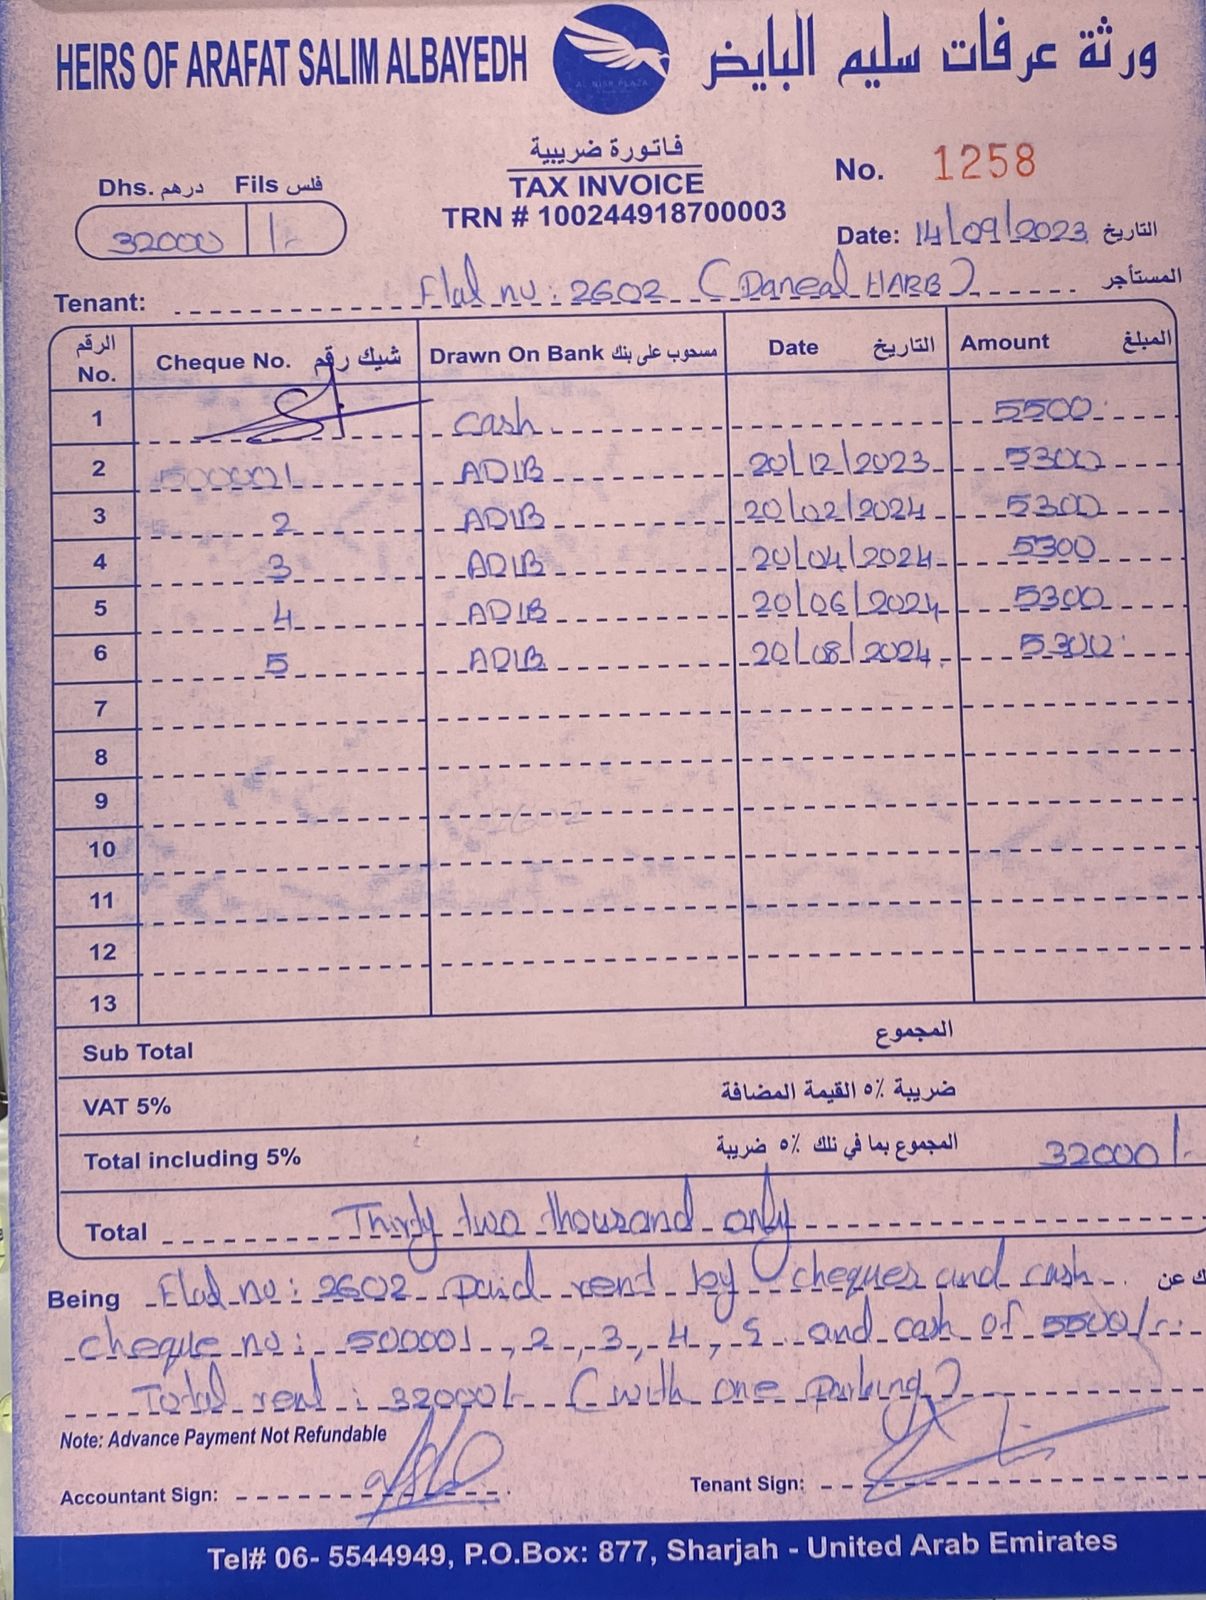 HEIRS OF ARAFAT SALIM ALBAYEDH ورثة عرفات سليم البايض
AL NISR PLAZA
فاتورة ضريبية
TAX INVOICE
TRN # 100244918700003
No. 1258
Dhs. درهم Fils فلس
32000 /-
Date: 14/09/2023 التاريخ
Tenant: Flat no: 2602 (Daneal HARB) المستأجر
الرقم No. Cheque No. شيك رقم Drawn On Bank مسحوب على بنك Date التاريخ Amount المبلغ
1 cash 5500
2 500001 ADIB 20/12/2023 5300
3 2 ADIB 20/02/2024 5300
4 3 ADIB 20/04/2024 5300
5 4 ADIB 20/06/2024 5300
6 5 ADIB 20/08/2024 5300
7
8
9
10
11
12
13
Sub Total المجموع
VAT 5% ضريبة ٥٪ القيمة المضافة
Total including 5% المجموع بما في تلك ٥٪ ضريبة 32000/-
Total Thirty two thousand only
Being Flat no: 2602 paid rent by cheques and cash ك عن
cheque no: 500001, 2, 3, 4, 5 and cash of 5500/-
Total rent: 32000/- (with one parking)
Note: Advance Payment Not Refundable
Accountant Sign: Tenant Sign:
Tel# 06- 5544949, P.O.Box: 877, Sharjah - United Arab Emirates